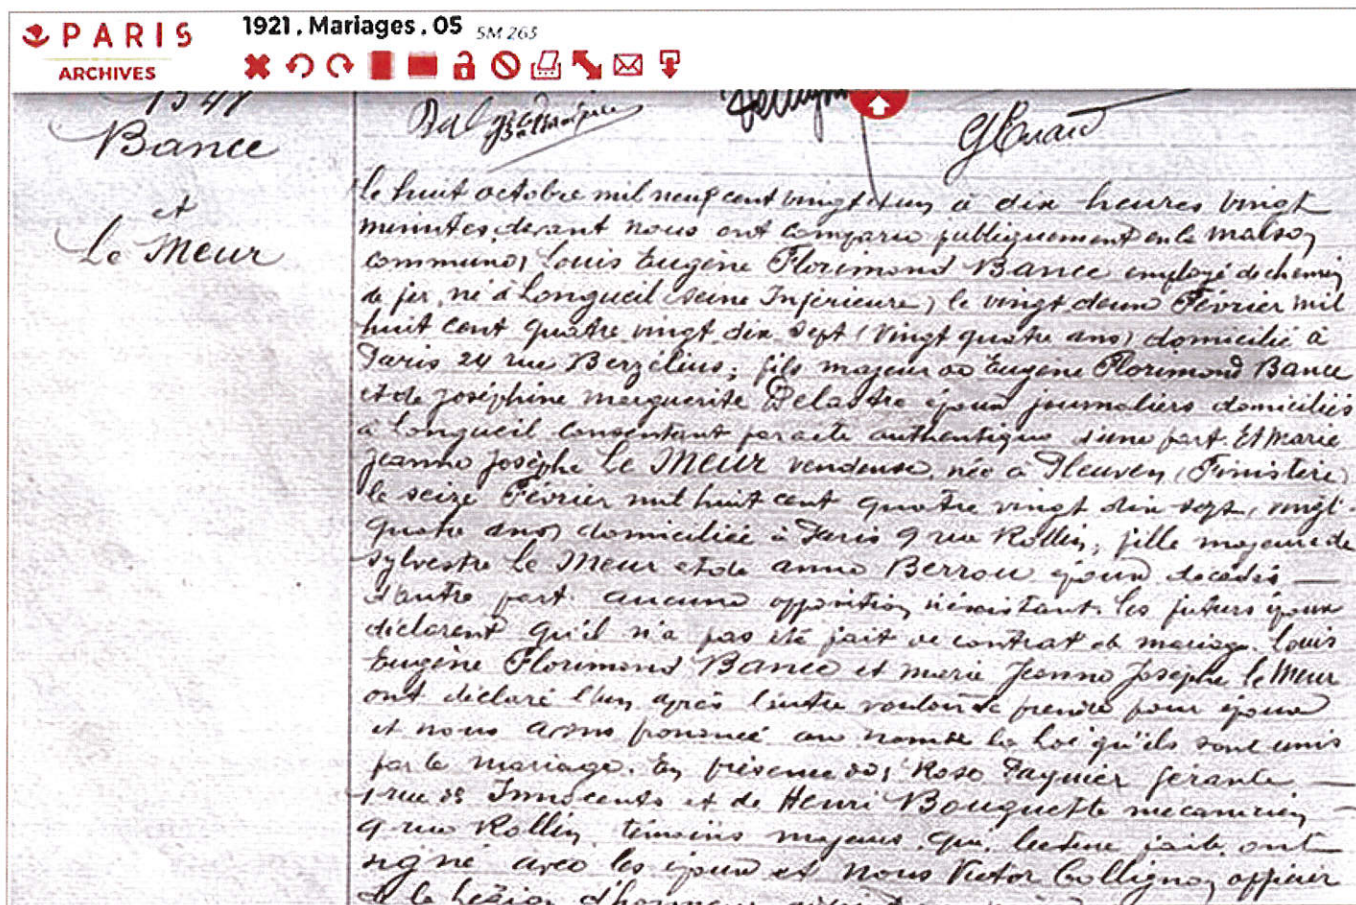 PARIS
ARCHIVES
1921 . Mariages . 05 5M 263
Bance
et
Le Meur
le huit octobre mil neuf cent vingt et un à dix heures vingt
minutes, devant nous ont comparu publiquement en la maison
commune, Louis Eugène Florimond Bance employé de chemin
de fer, né à Longueil (Seine Inférieure) le vingt deux Février mil
huit cent quatre vingt dix sept (vingt quatre ans) domicilié à
Paris 24 rue Berzélius, fils majeur de Eugène Florimond Bance
et de Joséphine Marguerite Delastre époux journaliers domiciliés
à Longueil consentant par acte authentique d'une part. Et Marie
Jeanne Josèphe Le Meur vendeuse, née à Pleuven (Finistère)
le seize Février mil huit cent quatre vingt dix sept, vingt-
quatre ans) domiciliée à Paris 9 rue Rollin, fille majeure de
Sylvestre Le Meur et de Anne Berrou époux décédés —
d'autre part. aucune opposition n'existant. les futurs époux
déclarent qu'il n'a pas été fait de contrat de mariage. Louis
Eugène Florimond Bance et Marie Jeanne Josèphe Le Meur
ont déclaré l'un après l'autre vouloir se prendre pour époux
et nous avons prononcé au nom de la Loi qu'ils sont unis
par le mariage. En présence de, Rose Paquier gérante —
1 rue des Innocents et de Henri Bouquette mécanicien —
9 rue Rollin, témoins majeurs, qui, lecture faite, ont
signé avec les époux et Nous Victor Collignon, officier
de la Légion d'honneur